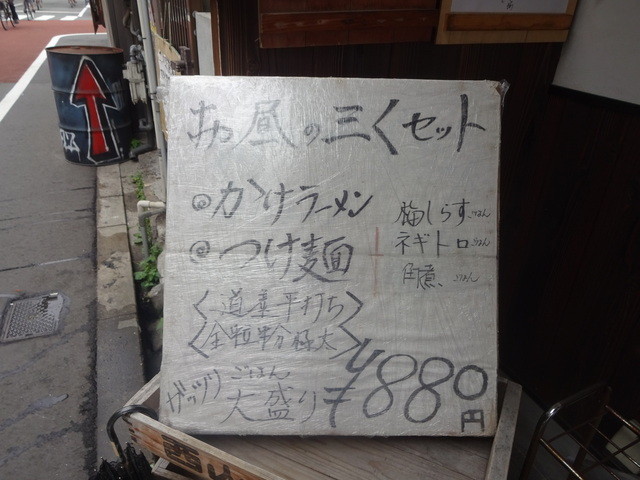 お昼の三くセット
◎かけラーメン
◎つけ麺
〈道産平打ち〉
〈全粒粉極大〉
しらすごはん
ネギトロごはん
ごはん
ガッツリごはん
大盛り
¥880円